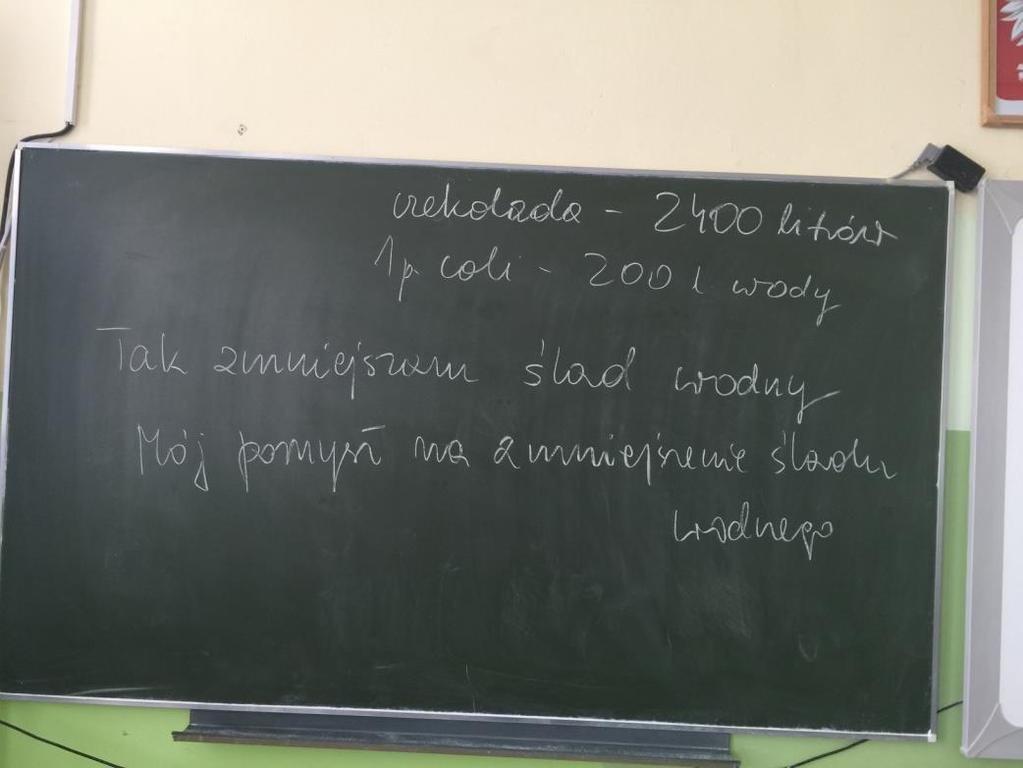 czekolada - 2400 litrów
1 p coli - 200 l wody
Tak zmniejszam ślad wodny
Mój pomysł na zmniejszenie śladu
wodnego